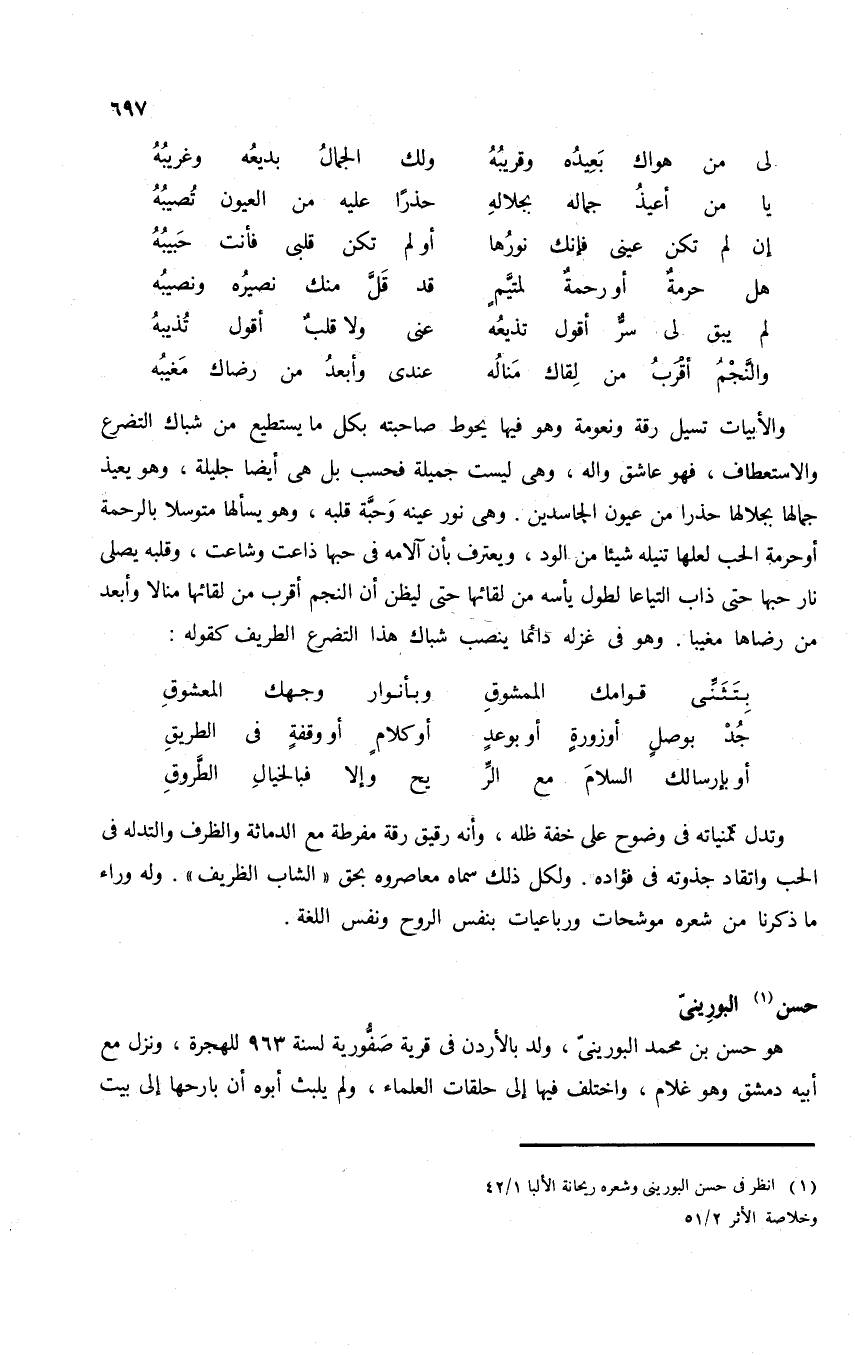 ٦٩٧
لى من هواك بَعِيدُه وقريبُهُ ولك الجمالُ بديعُه وغريبُهُ
يا من أعيذُ جماله بجلالهِ حذرًا عليه من العيون تُصيبُهُ
إن لم تكن عينى فإنك نورُها أو لم تكن قلبى فأنت حَبيبُهُ
هل حرمةٌ أو رحمةٌ لمتيَّمٍ قد قَلَّ منك نصيرُه ونصيبُه
لم يبق لى سرٌّ أقول تذيعُه عنى ولا قلبٌ أقول تُذيبهُ
والنَّجْمُ أقْرَبُ من لِقاك مَنالُه عندى وأبعدُ من رضاك مَغيبُه
والأبيات تسيل رقة ونعومة وهو فيها يحوط صاحبته بكل ما يستطيع من شباك التضرع
والاستعطاف ، فهو عاشق واله ، وهى ليست جميلة فحسب بل هى أيضا جليلة ، وهو يعيذ
جمالها بجلالها حذرا من عيون الحاسدين . وهى نور عينه وَحبَّة قلبه ، وهو يسألها متوسلا بالرحمة
أو حرمة الحب لعلها تنيله شيئا من الود ، ويعترف بأن آلامه فى حبها ذاعت وشاعت ، وقلبه يصلى
نار حبها حتى ذاب التياعا لطول يأسه من لقائها حتى ليظن أن النجم أقرب من لقائها منالا وأبعد
من رضاها مغيبا . وهو فى غزله دائما ينصب شباك هذا التضرع الطريف كقوله :
بِتَثَنِّى قوامك الممشوقِ وبأنوار وجهك المعشوقِ
جُدْ بوصلٍ أو زورةٍ أو بوعدٍ أو كلامٍ أو وقفةٍ فى الطريقِ
أو بإرسالك السلامَ مع الرِّ يح وإلا فبالخيالِ الطَّروقِ
وتدل تمنياته فى وضوح على خفة ظله ، وأنه رقيق رقة مفرطة مع الدماثة والظرف والتدله فى
الحب واتقاد جذوته فى فؤاده . ولكل ذلك سماه معاصروه بحق « الشاب الظريف » . وله وراء
ما ذكرنا من شعره موشحات ورباعيات بنفس الروح ونفس اللغة .
حسن (١) البورِينىّ
هو حسن بن محمد البورينىّ ، ولد بالأردن فى قرية صَفُّورية لسنة ٩٦٣ للهجرة ، ونزل مع
أبيه دمشق وهو غلام ، واختلف فيها إلى حلقات العلماء ، ولم يلبث أبوه أن بارحها إلى بيت
(١) انظر فى حسن البورينى وشعره ريحانة الألبا ٤٢/١
وخلاصة الأثر ٥١/٢